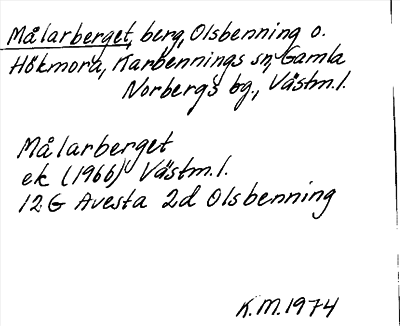 Målarberget, berg, Olsbenning o.
Hökmora, Karbennings sn, Gamla
Norbergs bg., Västm.l.
Målarberget
ek (1966) Västm.l.
12G Avesta 2d Olsbenning
K.M.1974